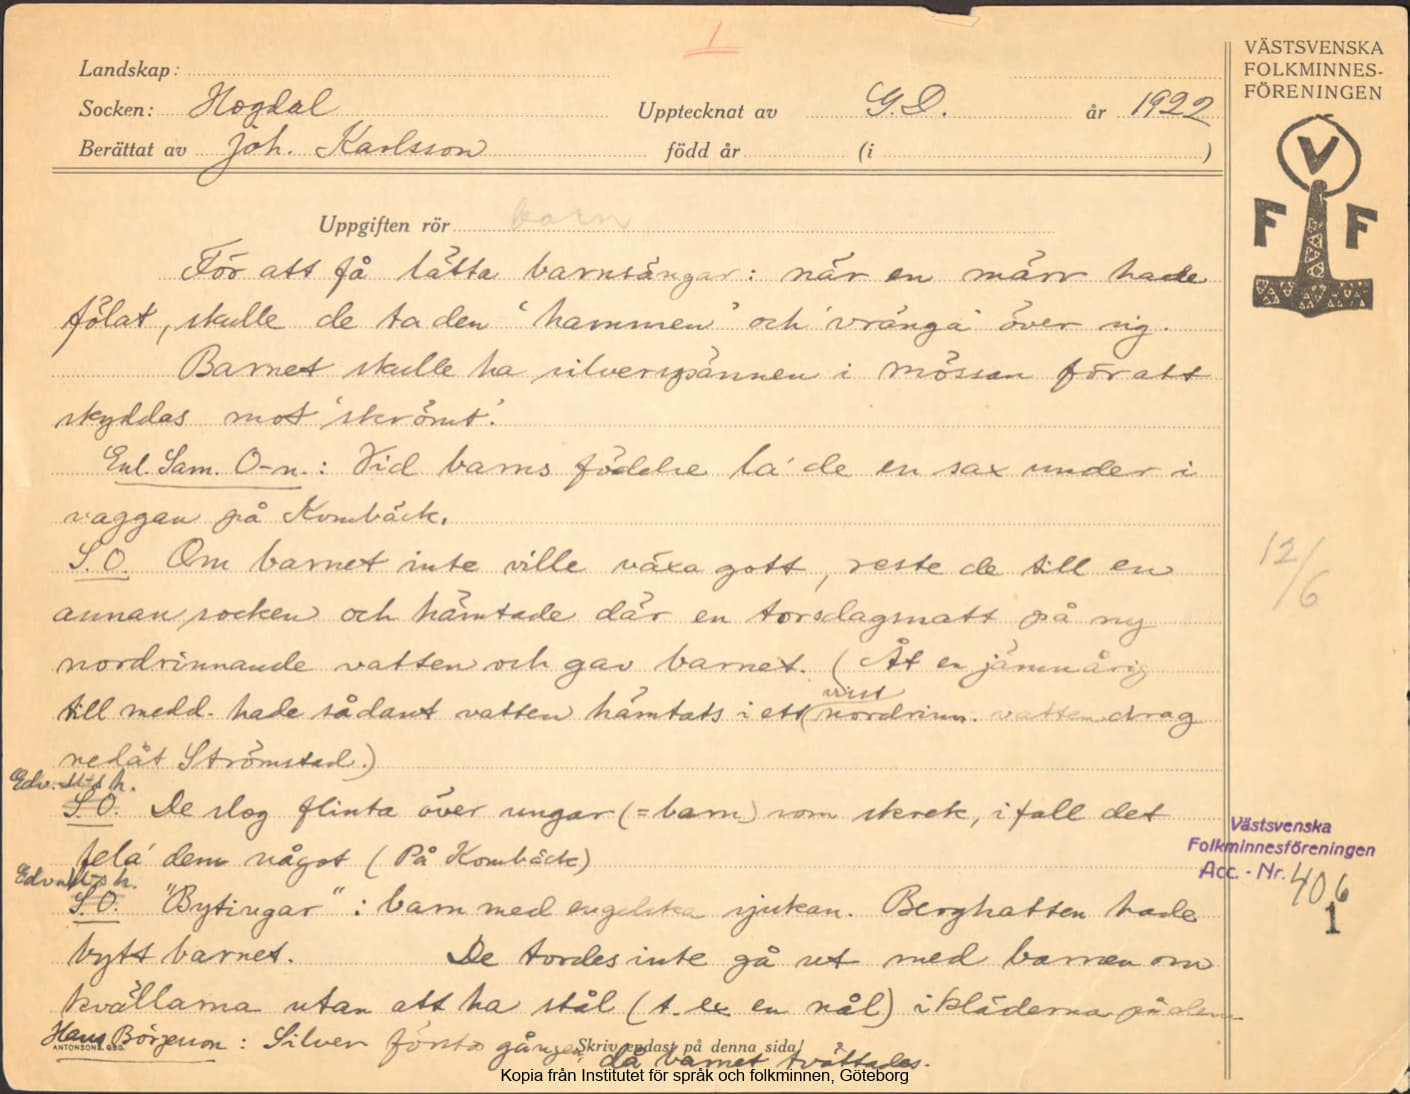 1
Landskap:
Socken: Hogdal Upptecknat av G.D. år 1922
Berättat av Joh. Karlsson född år (i )
VÄSTSVENSKA
FOLKMINNES-
FÖRENINGEN
V
F F
Uppgiften rör barn
För att få lätta barnsängar: när en märr hade
fölat, skulle de ta den 'hammen' och 'vränga' över sig.
Barnet skulle ha silverspännen i mössan för att
skyddas mot 'skrömt'.
Enl. Sam. O-n.: Vid barns födelse la' de en sax under i
vaggan på Kombäck.
S.O. Om barnet inte ville växa gott, reste de till en
annan socken och hämtade där en torsdagsnatt på ny
nordrinnande vatten och gav barnet. (Åt en jämnårig
till medd. hade sådant vatten hämtats i ett (visst nordrinn. vattendrag
nedåt Strömstad.)
12/6
Edv. h.
S.O. De slog flinta över ungar (= barn) som skrek, ifall det
fela' dem något (På Kombäck)
Edv. h.
S.O. "Bytingar": barn med engelska sjukan. Berghatten hade
bytt barnet. De tordes inte gå ut med barnen om
kvällarna utan att ha stål (t. ex en nål) i kläderna på dem.
Hans Börjesson: Silver första gången då barnet tvättades.
ANTONSONS, GBG.
Skriv endast på denna sida!
Västsvenska
Folkminnesföreningen
Acc. - Nr. 406
1
Kopia från Institutet för språk och folkminnen, Göteborg